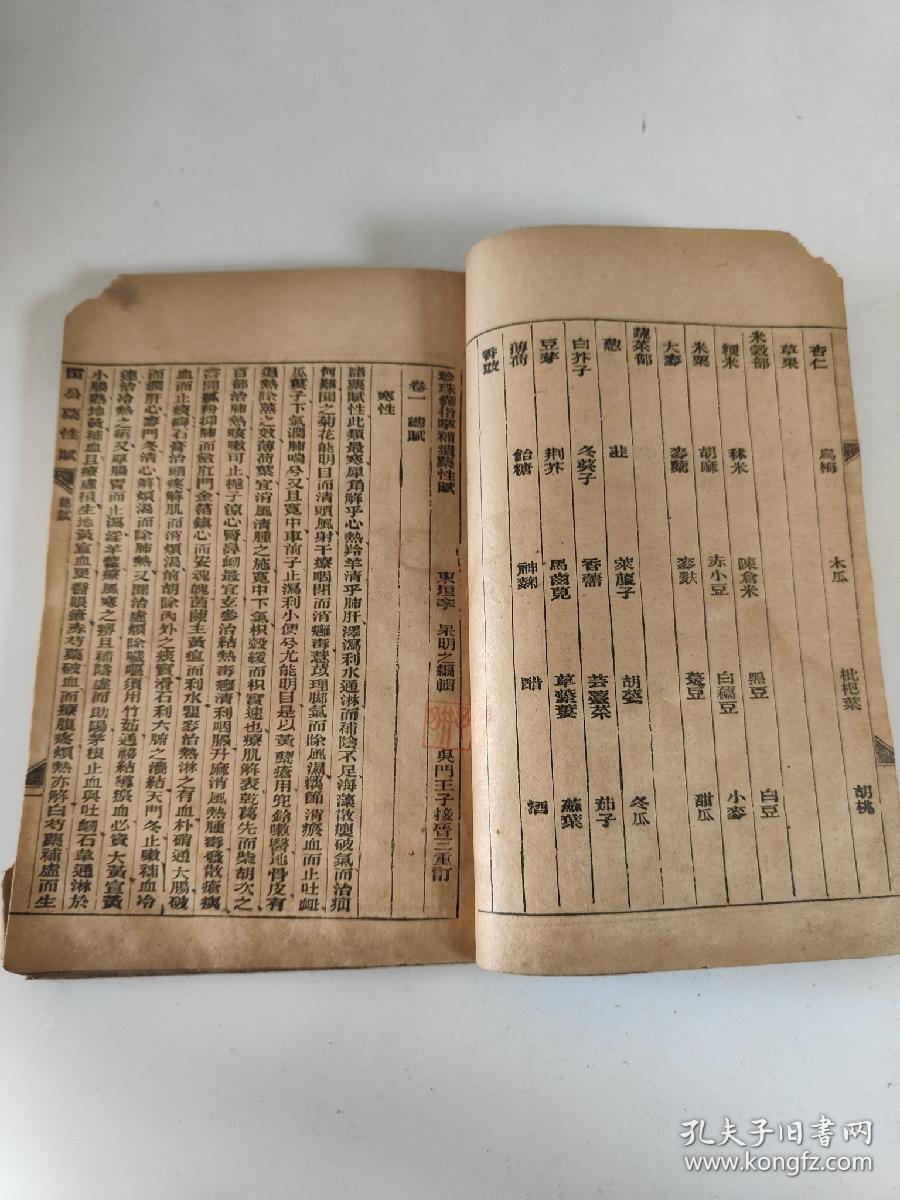 杏仁 烏梅 木瓜 枇杷葉 胡桃
草果
米穀部
粳米 秫米 陳倉米 黑豆 白豆
米粟 胡麻 赤小豆 白藊豆 小麥
大麥 麥櫱 麥麩 菉豆 甜瓜
蔬菜部
葱 韭 萊菔子 胡荽 冬瓜
白芥子 冬葵子 香薷 芸薹菜 茄子
豆芽 荆芥 馬齒莧 草蘩蔞 蘇葉
薄荷 飴糖 神麯 醋 酒
香豉
珍珠囊指掌補遺藥性賦 東垣李 杲明之編輯 吳門王子接晉三重訂
卷一 總賦
寒性
諸藥賦性此類最寒犀角解乎心熱羚羊清乎肺肝澤瀉利水通淋而補陰不足海藻散癭破氣而治疝
何難聞之菊花能明目而清頭風射干療咽閉而消癰毒薏苡理脚氣而除風濕藕節消瘀血而止吐衄
瓜蔞子下氣潤肺喘兮又且寬中車前子止瀉利小便兮尤能明目是以黃蘗瘡用兜鈴嗽醫地骨皮有
退熱除蒸之效薄荷葉宜消風清腫之施寬中下氣枳殼緩而枳實速也療肌解表乾葛先而柴胡次之
百部治肺熱咳嗽可止梔子凉心腎鼻衄最宜玄參治結熱毒癰清利咽膈升麻消風熱腫毒發散瘡痍
嘗聞膩粉抑肺而斂肛門金箔鎮心而安魂魄茵蔯主黃疸而利水瞿麥治熱淋之有血朴硝通大腸破
血而止痰癖石膏治頭疼解肌而消煩渴前胡除內外之痰實滑石利六腑之濇結天門冬止嗽補血冷
而潤肝心麥門冬清心解煩渴而除肺熱又聞治虛煩除噦嘔須用竹茹通秘結導瘀血必資大黃宣黃
連治冷熱之痢又厚腸胃而止瀉淫羊藿療風寒之痺且補陰虛而助陽茅根止血與吐衄石韋通淋於
小腸熟地黃補血且療虛損生地黃宣血更醫眼瘡赤芍藥破血而療腹疼煩熱亦解白芍藥補虛而生
雷公藥性賦 總賦 一
孔夫子旧书网
www.kongfz.com